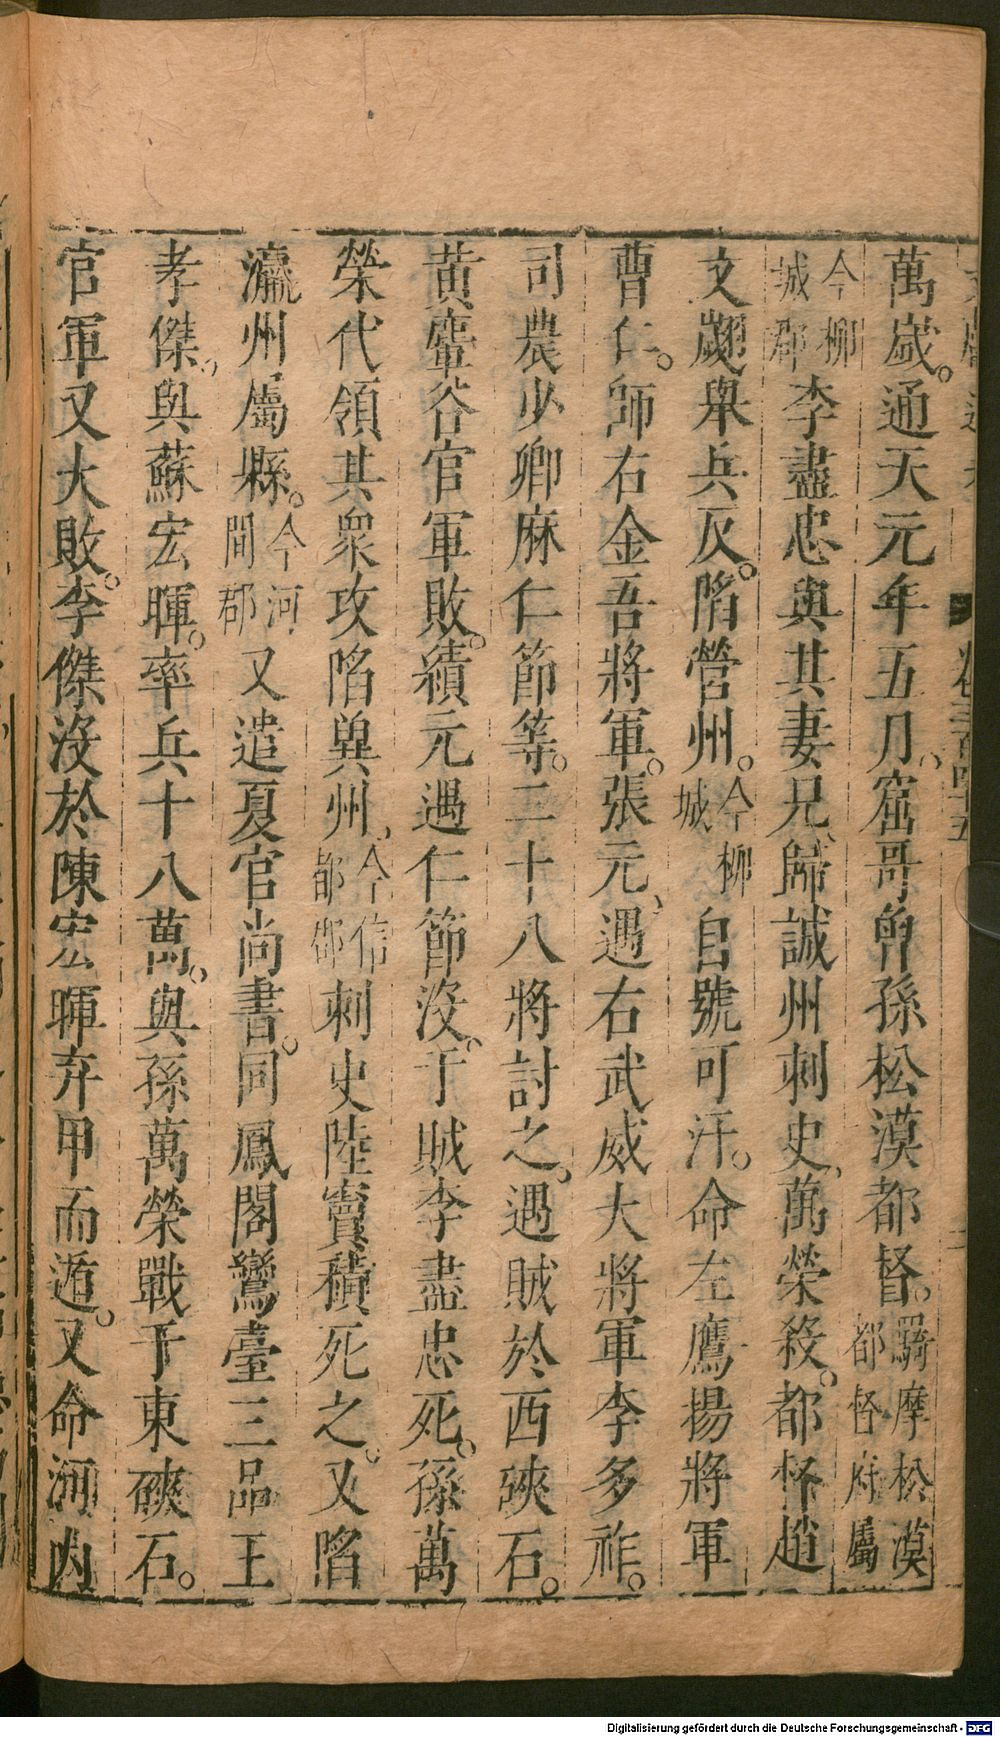 萬歲。通天元年五月、窟哥曾孫松漠都督。羈摩松漠都督府屬
今柳城郡李盡忠與其妻兄、歸誠州刺史、萬榮殺。都督趙
文翽舉兵反。陷營州。今柳城自號可汗。命左鷹揚將軍
曹仁。師右金吾將軍。張元、遇右武威大將軍李多祚。
司農少卿麻仁節等。二十八將討之、遇賊於西硤石。
黃麞谷官軍敗。續元遇仁節沒。于賊李盡忠死。孫萬
榮代領其衆攻陷兾州、今信都郡刺史陸寶積死之。又陷
瀛州屬縣。今河間郡又遣夏官尚書。同鳳閣鸞臺三品王
孝傑、與蘇宏暉。率兵十八萬。與孫萬榮戰于東硤石。
官軍又大敗。李傑沒於陳宏暉弃甲而遁。又命河內
卷三百四十五
Digitalisierung gefördert durch die Deutsche Forschungsgemeinschaft - DFG